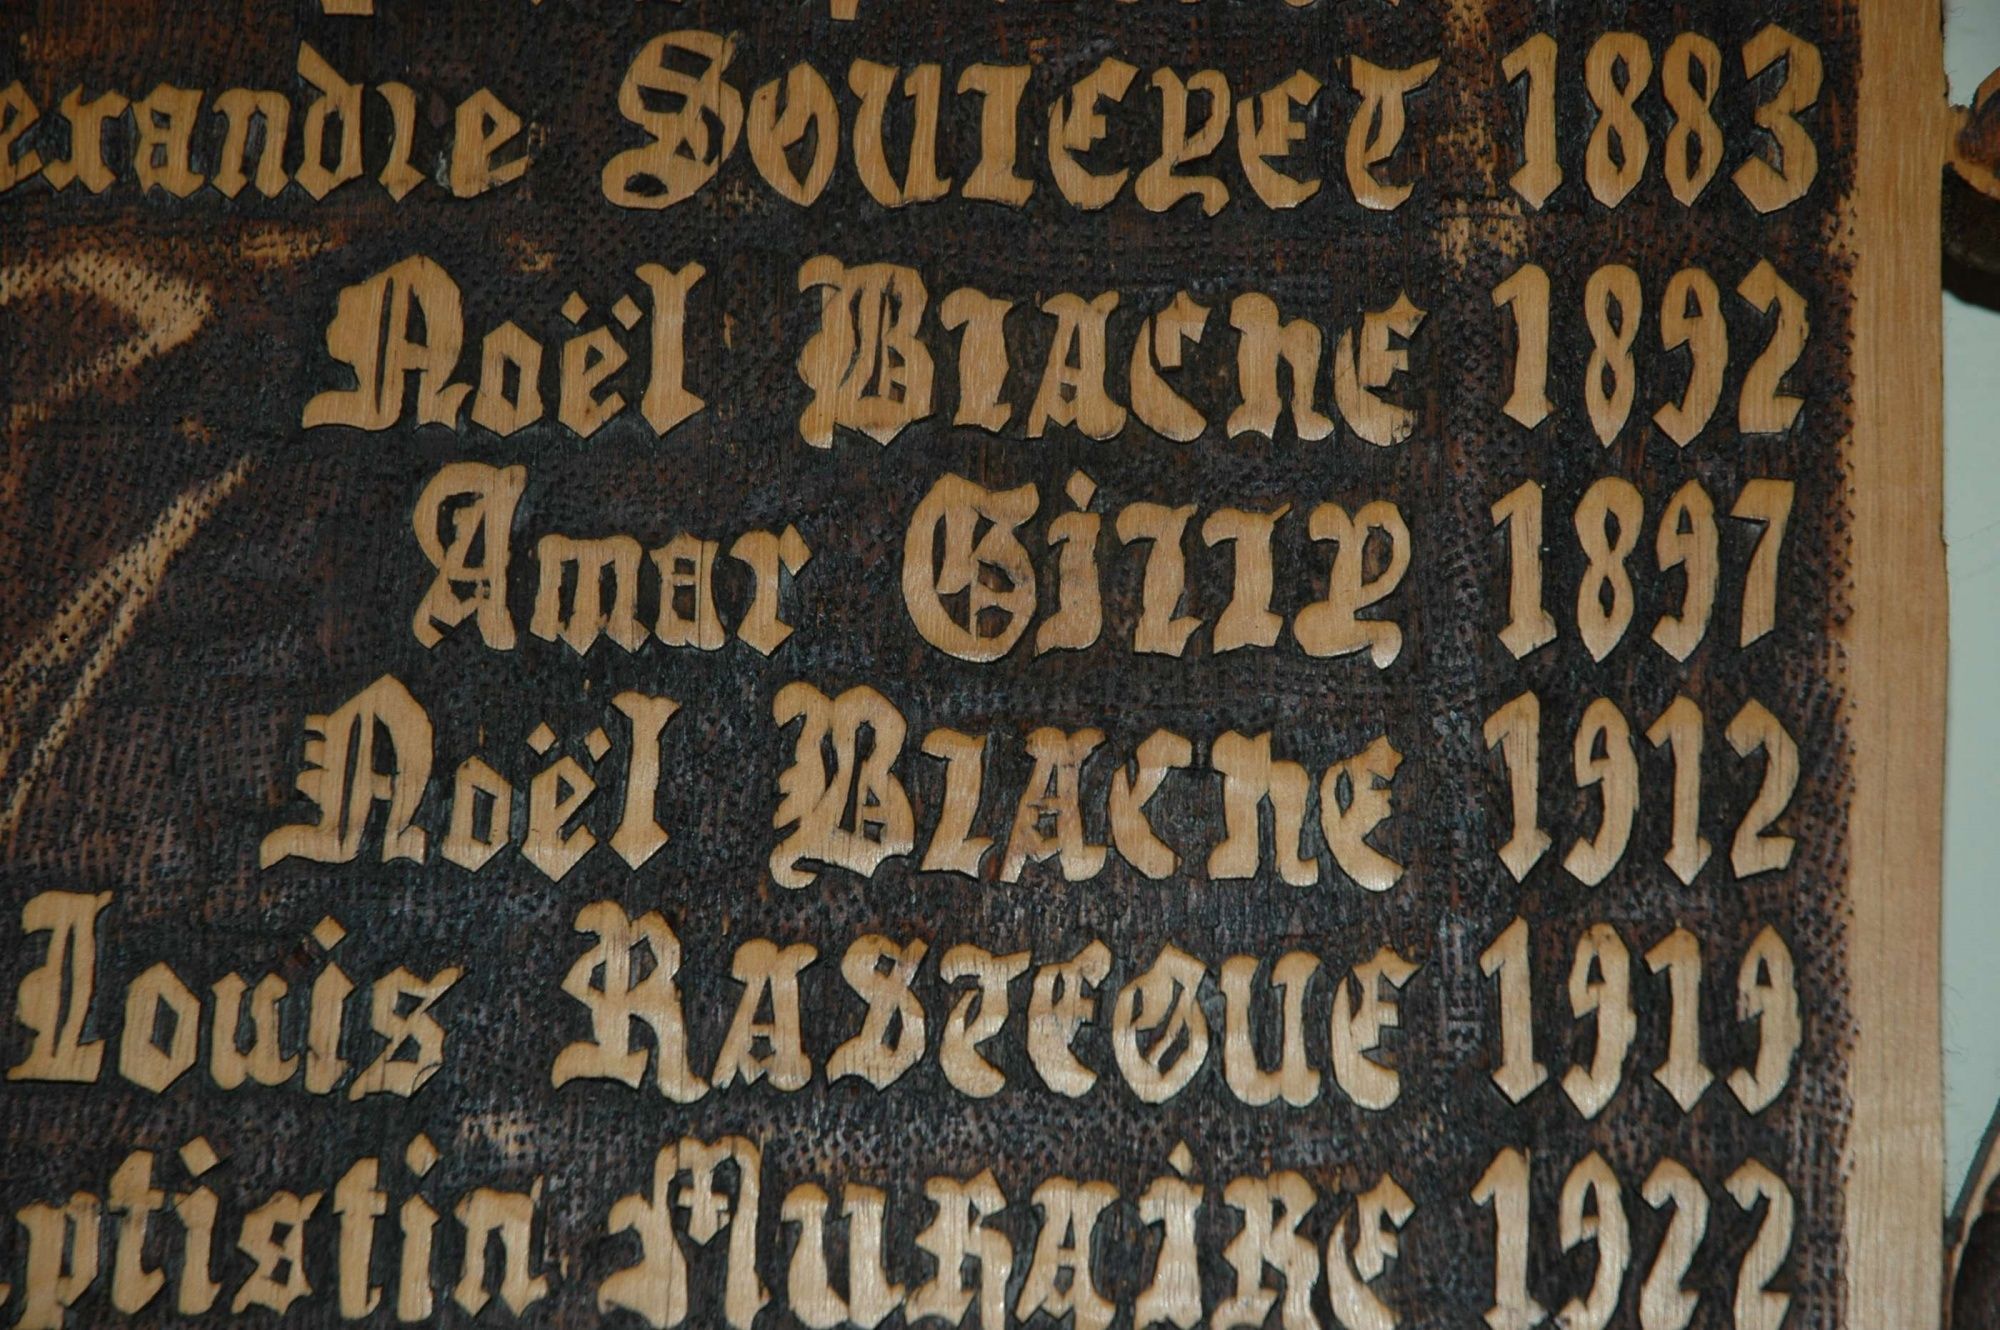 exandre SOULEYET 1883
Noël BLACHE 1892
Amar GILLY 1897
Noël BLACHE 1912
Louis RASTEQUE 1919
ptistin MURAIRE 1922